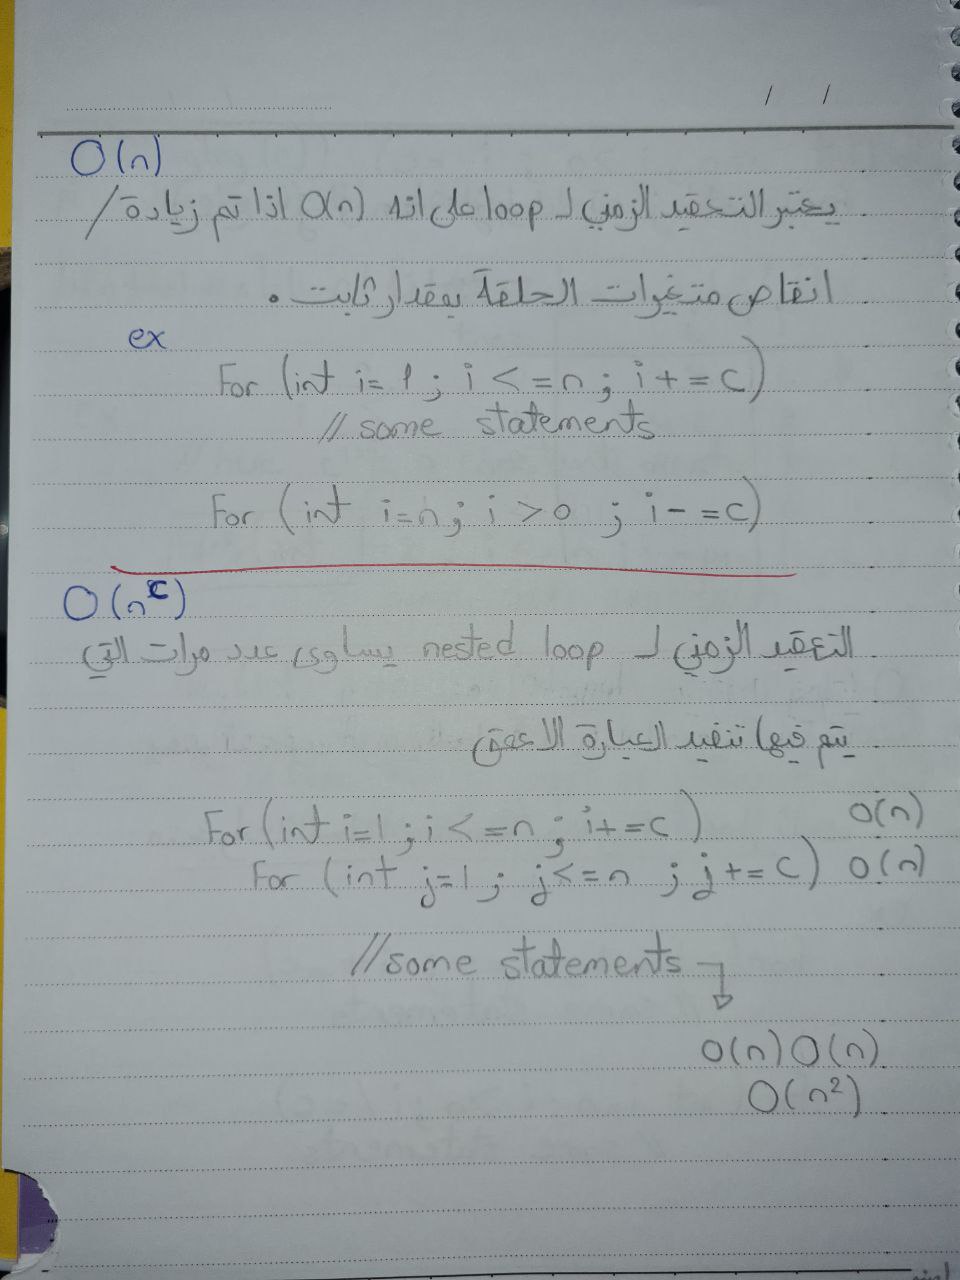 / /
O(n)
يعتبر التعقيد الزمني لـ loop على انه O(n) اذا تم زيادة /
انقاص متغيرات الحلقة بمقدار ثابت .
ex
For (int i=1; i <=n; i+=c)
// some statements
For (int i=n; i >0 ; i-=c)
O(n^c)
التعقيد الزمني لـ nested loop يساوى عدد مرات التي
يتم فيها تنفيد العبارة الاعمق
For (int i=1; i<=n; i+=c) O(n)
For (int j=1; j<=n ; j+=c) O(n)
//some statements
O(n) O(n)
O(n²)